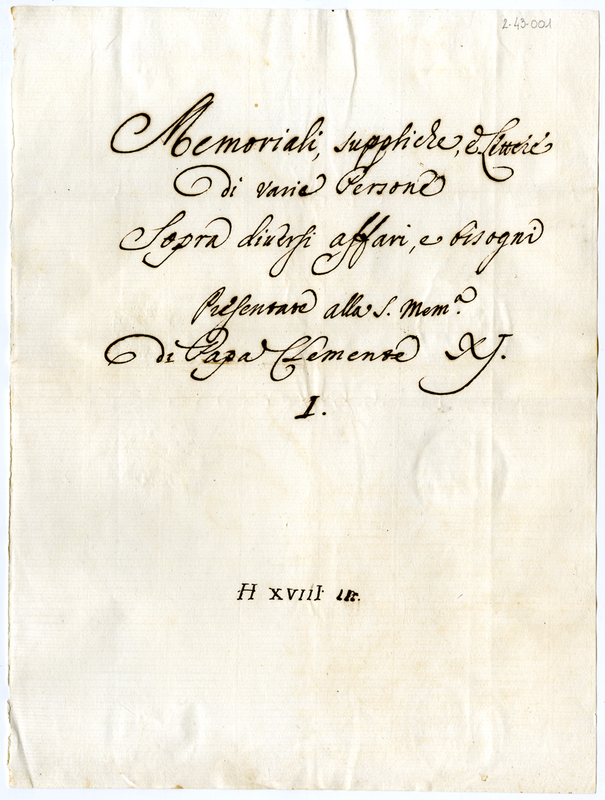 2-43-001
Memoriali, suppliche, è Lettere
di varie Persone
Sopra diversi affari, e bisogni
Presentate alla S. Mem.a
di Papa Clemente XI.
I.
H XVIII